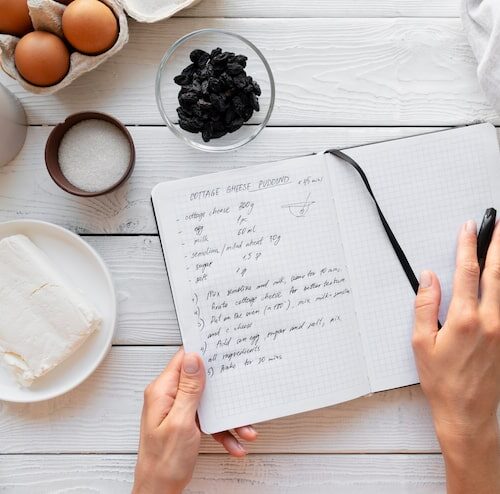 COTTAGE CHEESE PUDDING
≈ 45 min
- cottage cheese 200g
- egg 1 pc
- milk 60 ml
- semolina / milled wheat 30g
- sugar 1.5
- salt 1g
1) Mix semolina and milk, leave for 10 min,
2) Grate cottage cheese for better texture
3) Put on the oven (≈ 180°), mix milk-semolina
and c. cheese
4) Add an egg, sugar and salt, mix
all ingredients
5) Bake for 30 mins